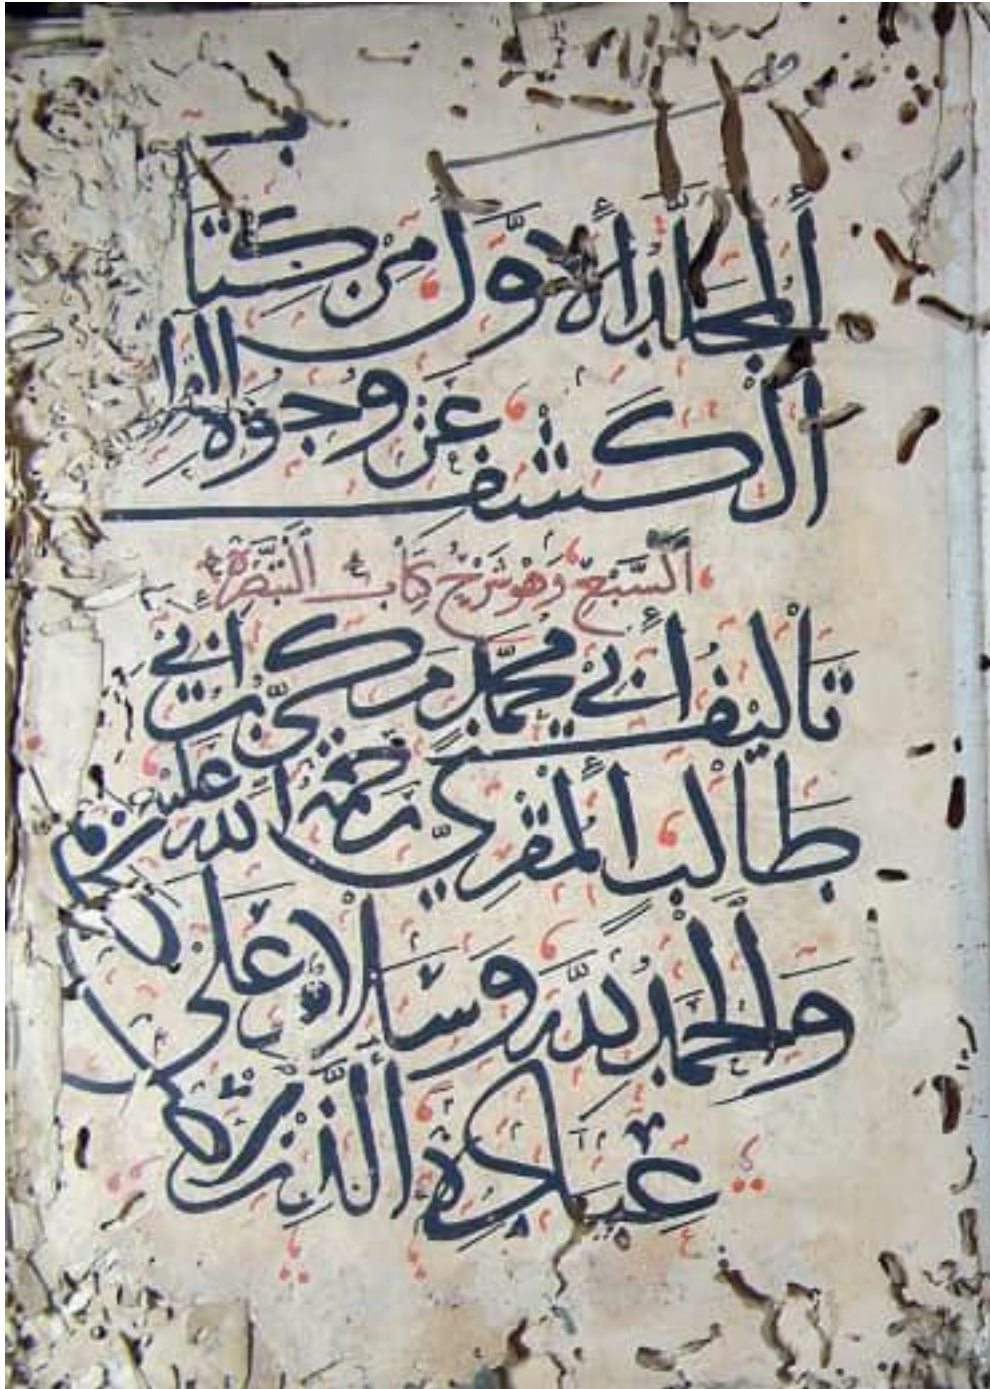 المجلد الأول من كتاب
الكشف عن وجوه القرا
السبع وهو شرح كتاب التبصرة
تأليف أبي محمد مكي بن أبي
طالب المقرئ رحمة الله عليه
والحمد لله وسلام على
عباده الذين